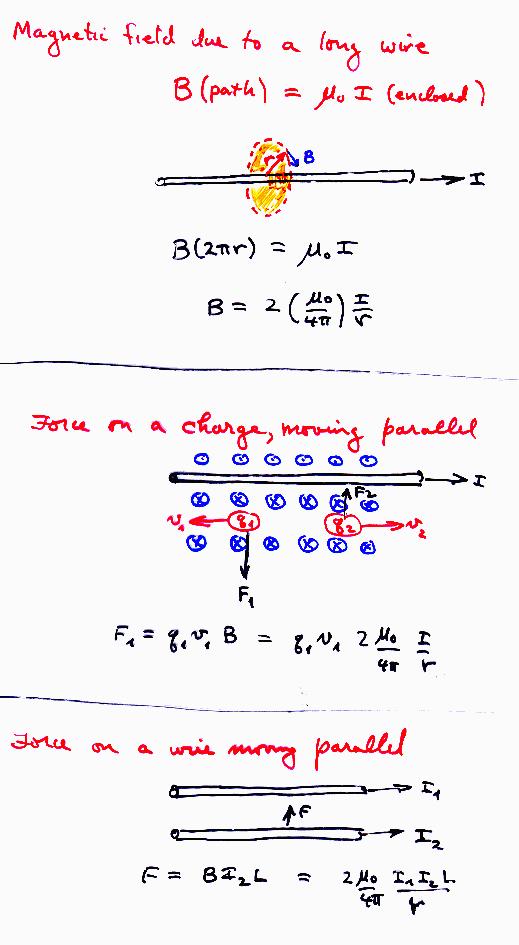 Magnetic field due to a long wire
B (path) = μ₀ I (enclosed)
r B
I
B(2πr) = μ₀ I
B = 2 (μ₀/4π) I/r
Force on a charge, moving parallel
I
F₂
v₁ q₁ q₂ v₂
F₁
F₁ = q₁v₁ B = q₁ v₁ 2 μ₀/4π I/r
Force on a wire moving parallel
I₁
F
I₂
F = B I₂ L = 2μ₀/4π I₁ I₂ L/r